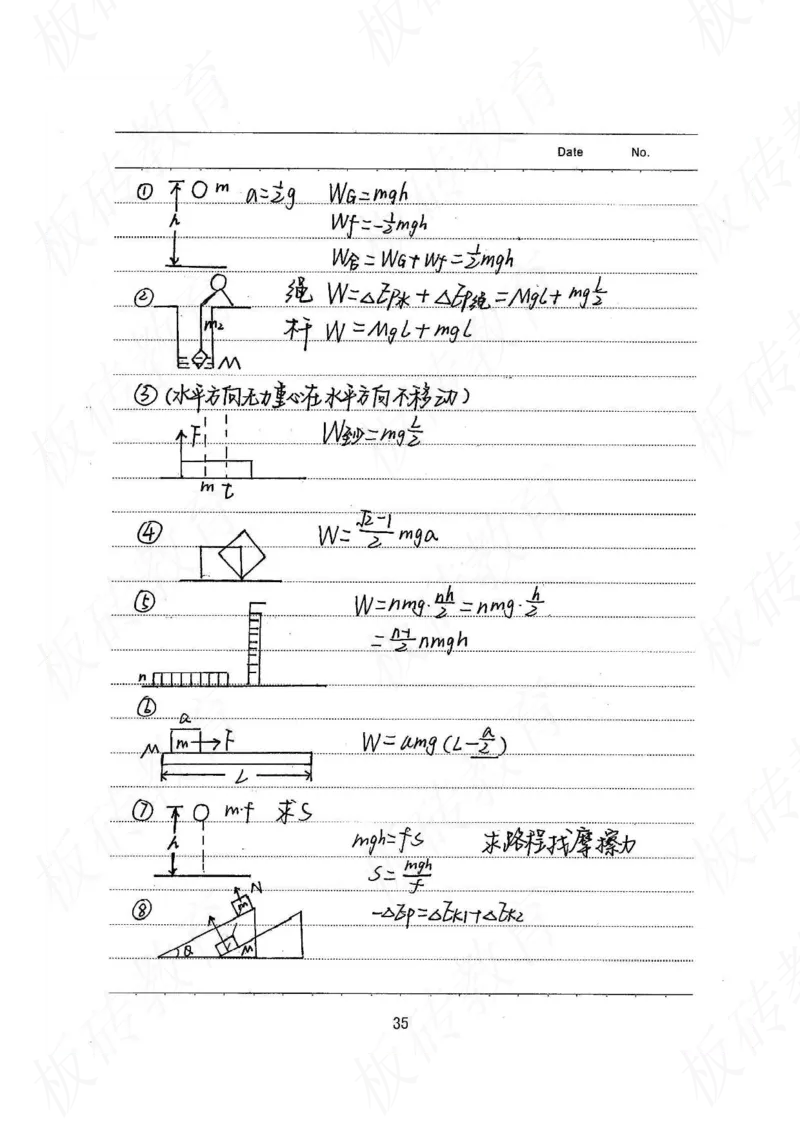 Date No.
① m a=½g WG=mgh
h Wf=-½mgh
W合=WG+Wf=½mgh
② 绳 W=△Ep水+△Ep绳=MgL+mg\frac{L}{2}
m₂ 杆 W=MgL+mgL
M
③ (水平方向无力重心在水平方向不移动)
F W至少=mg\frac{L}{2}
m t
④ W=\frac{√2-1}{2}mga
⑤ W=nmg·\frac{nh}{2}=nmg·\frac{h}{2}
=\frac{n-1}{2}nmgh
n
⑥
a
M m F W=umg(L-\frac{a}{2})
L
⑦ m·f 求S
h mgh=fS 求路程找摩擦力
S=\frac{mgh}{f}
N
⑧ m -△Ep=△Ek1+△Ek2
θ M
35
板砖教育